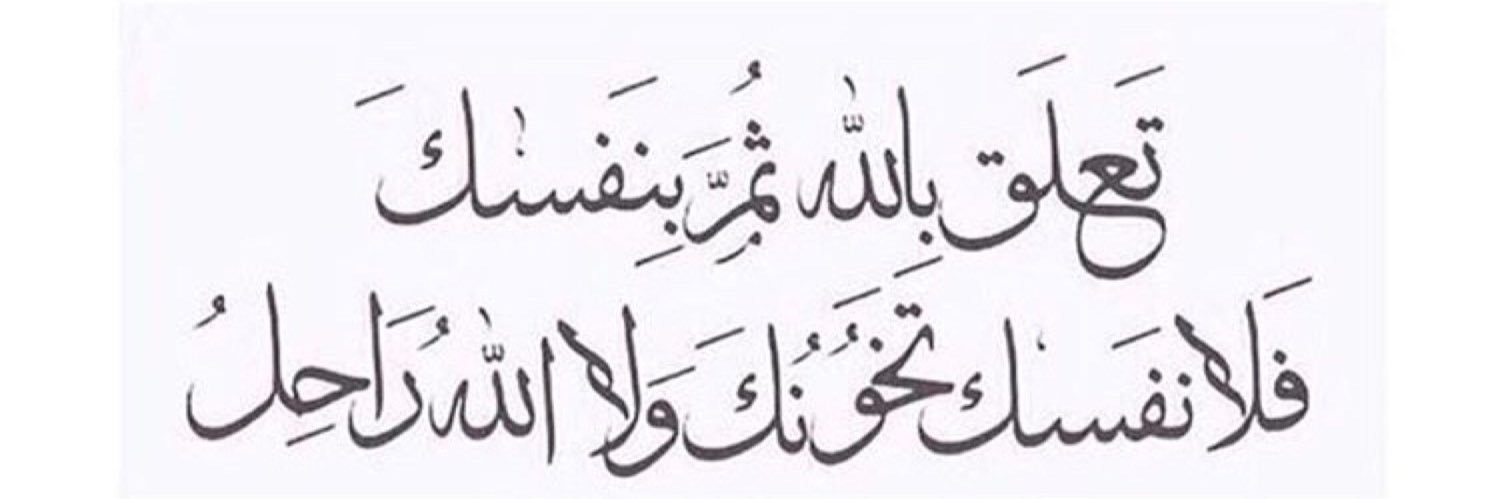 تَعلَق بِالله ثُمَّ بِنَفسك
فَلا نَفسك تَخُونُكَ وَلا اللهُ رَاحِلُ